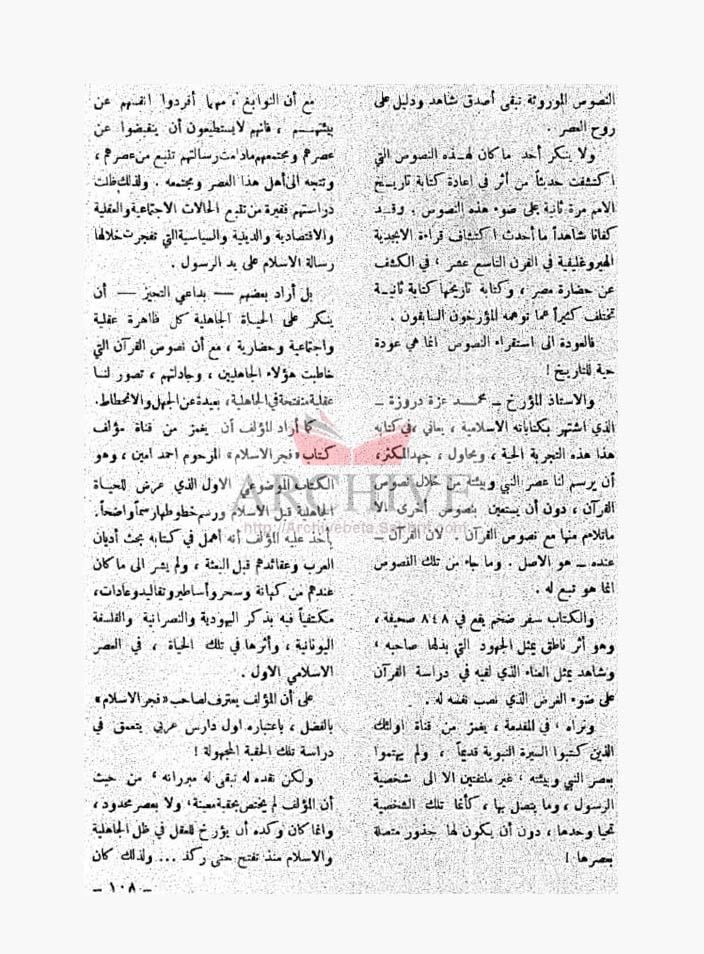 النصوص الموروثة تبقى أصدق شاهد ودليل على
روح العصر .
ولا ينكر أحد ما كان لهـذه النصوص التي
اكتشفت حديثاً من أثر في اعادة كتابة تاريـخ
الامم مرة ثانية على ضوء هذه النصوص . وقـد
كفانا شاهداً ما أحدث اكتشاف قراءة الابجدية
الهيروغليفية في القرن التاسع عشر ، في الكشف
عن حضارة مصر ، وكتابة تاريخها كتابة ثانيـة
تختلف كثيراً عما توهمه المؤرخون السابقون .
فالعودة الى استقراء النصوص انما هي عودة
حية للتاريخ !
والاستاذ المؤرخ ـ محمـد عزة دروزة ـ
الذي اشتهر بكتاباته الاسلامية ، يعاني ، في كتابه
هذا هذه التجربة الحية ، ويحاول ، جهد المكثر ،
أن يرسم لنا عصر النبي وبيئته من خلال نصوص
القرآن ، دون أن يستعين بنصوص أخرى الا
ماتلاءم منها مع نصوص القرآن . لان القرآن ـ
عنده ـ هو الاصل . وما جاء من تلك النصوص
انما هو تبع له .
والكتاب سفر ضخم يقع في ٨٤٨ صحيفة ،
وهو أثر ناطق يمثل الجهود التي بذلها صاحبه ،
وشاهد يمثل العناء الذي لقيه في دراسة القرآن
على ضوء الغرض الذي نصب نفسه له .
ونراه ، في المقدمة ، يغمز من قناة اولئك
الذين كتبوا السيرة النبوية قديماً ، ولم يهتموا
بعصر النبي وبيئته ، غير ملتفتين الا الى شخصية
الرسول ، وما يتصل بها ، كأنما تلك الشخصية
تحيا وحدها ، دون أن يكون لها جذور متصلة
بعصرها !
مع أن النوابغ ، مهما أفردوا انفسهم عن
بيئتهـم ، فانهم لا يستطيعون أن ينفضوا عن
عصرهم ومجتمعهم مادامت رسالتهم تنبع من عصرهم ،
وتتجه الى أهل هذا العصر ومجتمعه . ولذلك ظلت
دراستهم فقيرة من تتبع الحالات الاجتماعية والعقلية
والاقتصادية والدينية والسياسية التي تفجرت خلالها
رسالة الاسلام على يد الرسول .
بل أراد بعضهم — بداعي التحيز — أن
ينكر على الحيـاة الجاهلية كل ظاهرة عقلية
واجتماعية وحضارية ، مع أن نصوص القرآن التي
خاطبت هؤلاء الجاهليين ، وجادلتهم ، تصور لنـا
عقلية متفتحة في الجاهلية ، بعيدة عن الجهل والانحطاط.
كما أراد المؤلف أن يغمز من قناة مؤلف
كتاب « فجر الاسلام » المرحوم احمد امين ، وهو
الكتاب الموضوعي الاول الذي عرض للحياة
الجاهلية قبل الاسلام ورسم خطوطها رسماً واضحاً.
يأخذ عليه المؤلف أنه أهمل في كتابه بحث أديان
العرب وعقائدهم قبل البعثة ، ولم يشر الى ما كان
عندهم من كهانة وسحر وأساطير وتقاليد وعادات ،
مكتفياً فيه بذكر اليهودية والنصرانية والفلسفة
اليونانية ، وأثرها في تلك الحياة ، في العصر
الاسلامي الاول .
على أن المؤلف يعترف لصاحب « فجر الاسلام »
بالفضل ، باعتباره اول دارس عربي يتعمق في
دراسة تلك الحقبة المجهولة !
ولكن نقده له تبقى له مبرراته ، من حيث
أن المؤلف لم يختص بحقبة معينة، ولا بعصر محدود ،
وانما كان وكده أن يؤرخ للعقل في ظل الجاهلية
والاسلام منذ تفتح حتى ركد ... ولذلك كان
ـ ١٠٨ ـ
ARCHIVE
http://Archivebeta.Sakhrit.com